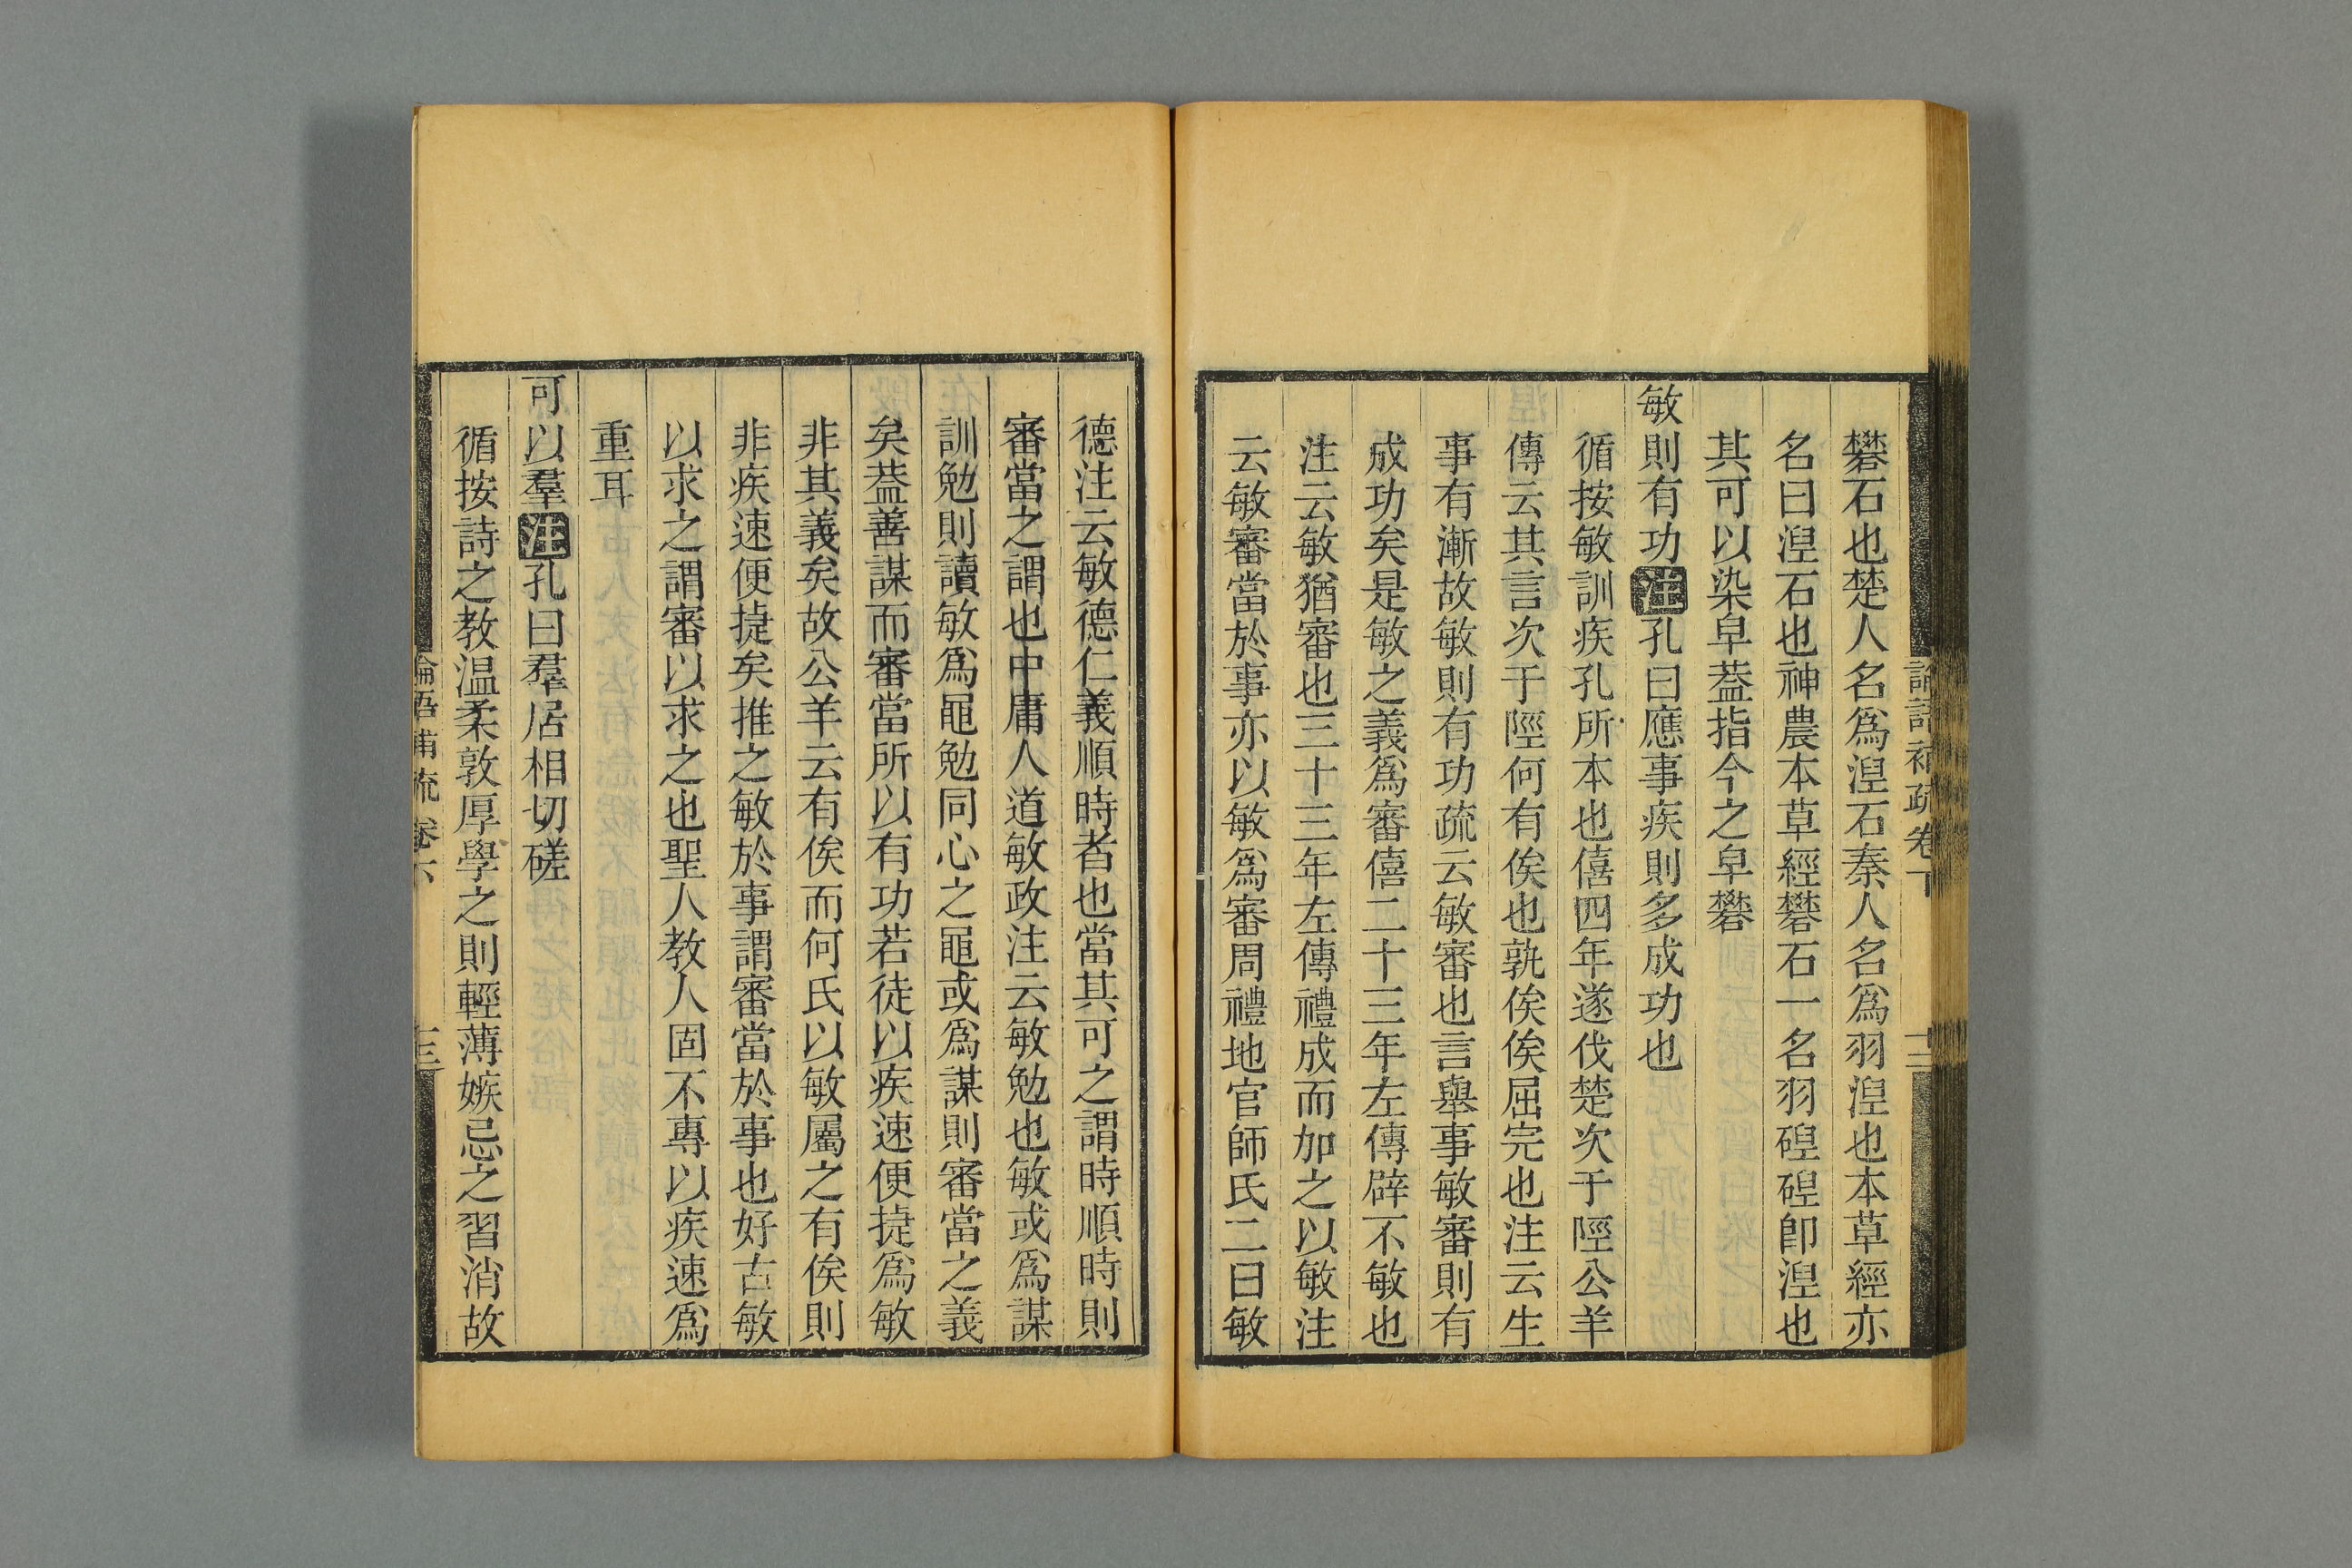 礬石也楚人名爲湼石秦人名爲羽湼也本草經亦
名曰湼石也神農本草經礬石一名羽䃏䃏卽湼也
其可以染皁葢指今之皁礬
敏則有功注孔曰應事疾則多成功也
循按敏訓疾孔所本也僖四年遂伐楚次于陘公羊
傳云其言次于陘何有俟也孰俟俟屈完也注云生
事有漸故敏則有功疏云敏審也言舉事敏審則有
成功矣是敏之義爲審僖二十三年左傳辟不敏也
注云敏猶審也三十三年左傳禮成而加之以敏注
云敏審當於事亦以敏爲審周禮地官師氏二曰敏
德注云敏德仁義順時者也當其可之謂時順時則
審當之謂也中庸人道敏政注云敏勉也敏或爲謀
訓勉則讀敏爲黽勉同心之黽或爲謀則審當之義
矣葢善謀而審當所以有功若徒以疾速便捷爲敏
非其義矣故公羊云有俟而何氏以敏屬之有俟則
非疾速便捷矣推之敏於事謂審當於事也好古敏
以求之謂審以求之也聖人教人固不專以疾速爲
重耳
可以羣注孔曰羣居相切磋
循按詩之教溫柔敦厚學之則輕薄嫉忌之習消故